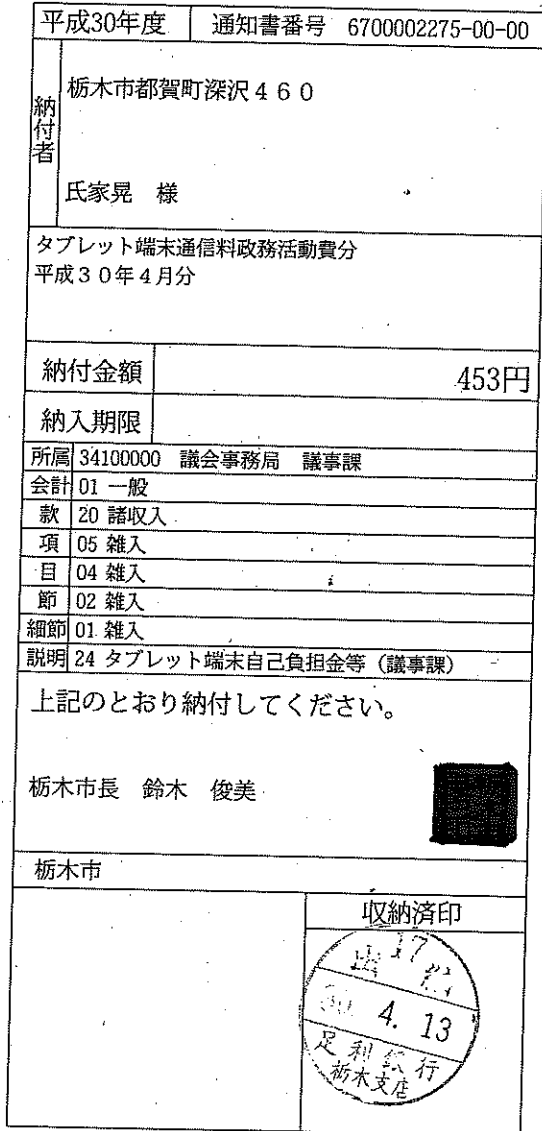 平成30年度 通知書番号 6700002275-00-00
納付者
栃木市都賀町深沢460
氏家晃 様
タブレット端末通信料政務活動費分
平成30年4月分
納付金額 453円
納入期限
所属 34100000 議会事務局 議事課
会計 01 一般
款 20 諸収入
項 05 雑入
目 04 雑入
節 02 雑入
細節 01 雑入
説明 24 タブレット端末自己負担金等（議事課）
上記のとおり納付してください。
栃木市長 鈴木 俊美
栃木市
収納済印
17
30. 4. 13
足利銀行
栃木支店